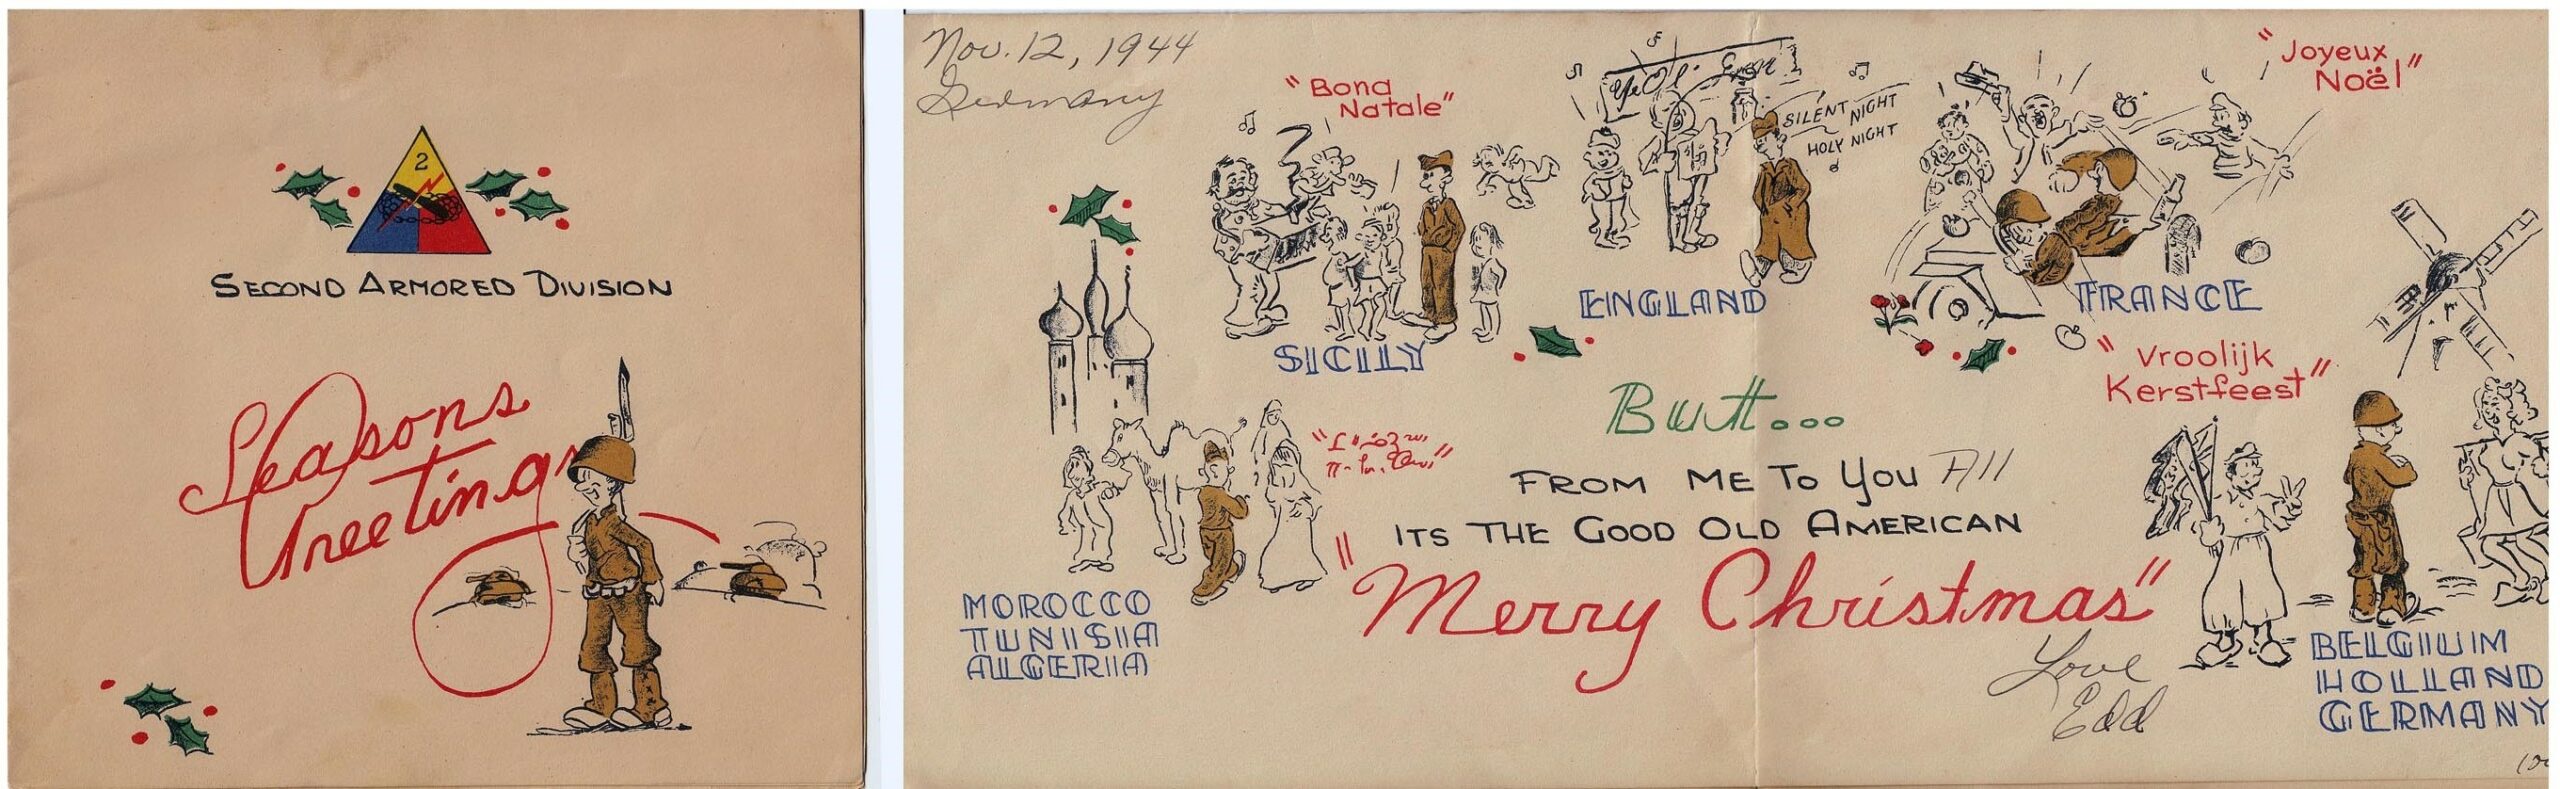 2
SECOND ARMORED DIVISION
Seasons
Greetings
Nov. 12, 1944
Germany
"Bona
Natale"
SICILY
Ye Ol'
SILENT NIGHT
HOLY NIGHT
ENGLAND
"Joyeux
Noël"
FRANCE
"Vroolijk
Kerstfeest"
MOROCCO
TUNISIA
ALGERIA
But...
FROM ME TO YOU All
ITS THE GOOD OLD AMERICAN
"Merry Christmas"
Love
Edd
BELGIUM
HOLLAND
GERMANY